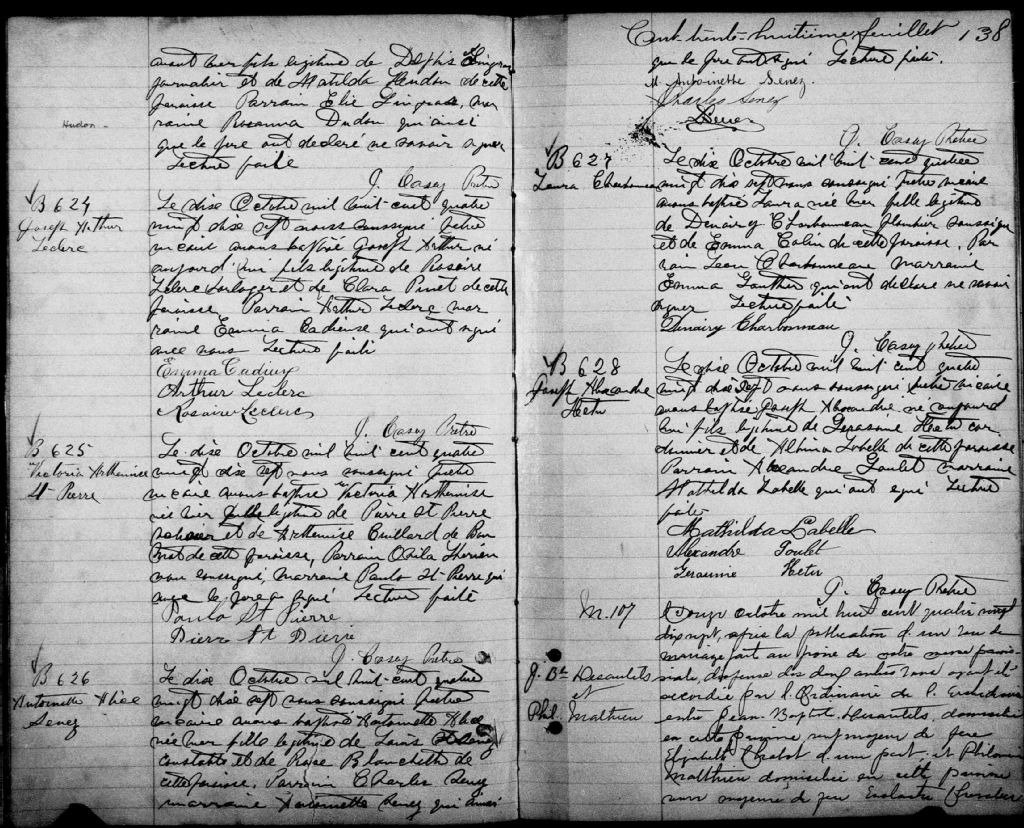 avant hier fils légitime de Delphis Gingras
journalier et de Matilda Hudon de cette
paroisse Parrain Elie Gingras, mar
raine Rosanna Dudon qui ainsi
que le père ont declaré ne savoir signer
Lecture faite
J. Casey Ptre
Hudon
B 624
Joseph Arthur
Leclerc
Le dix Octobre mil huit cent quatre
vingt dix sept nous soussigné prêtre
vicaire avons baptisé Joseph Arthur né
aujourd'hui fils légitime de Rosaire
Leclerc horloger et de Clara Pinet de cette
paroisse, Parrain Arthur Leclerc mar
raine Emma Cadieux qui ont signé
avec nous Lecture faite
Emma Cadieux
Arthur Leclerc
Rosaire Leclerc
J. Casey Prêtre
B 625
Victoria Arthemise
St Pierre
Le dix Octobre mil huit cent quatre
vingt dix sept nous soussigné prêtre
vicaire avons baptisé Victoria Arthemise
née hier fille légitime de Pierre St Pierre
et de Arthemise
de cette paroisse, Parrain
non soussigné, marraine Paula St-Pierre qui
avec le père a signé Lecture faite
Paula St Pierre
Pierre St Pierre
J. Casey Prêtre
B 626
Antoinette Alice
Senez
Le dix Octobre mil huit-cent quatre
vingt dix sept nous soussigné prêtre
vicaire avons baptisé Antoinette Alice
née hier fille légitime de Louis Senez
constable et de Rose Blanchette de
cette paroisse. Parrain Charles Senez
marraine Antoinette Senez qui ainsi
Cent-trente-huitième feuillet 138
que le père ont signé Lecture faite.
M. Antoinette Senez.
Charles Senez
LSenez
J. Casey Prêtre
B 627
Laura Charbonneau
Le dix Octobre mil huit cent quatre
vingt dix sept nous soussigné prêtre vicaire
avons baptisé Laura née hier fille légitime
de Charbonneau plombier soussigné
et de Emma Colin de cette paroisse, Par
rain Leon Charbonneau marraine
Emma Gauthier qui ont déclaré ne savoir
signer Lecture faite
Charbonneau
J. Casey Prêtre
B 628
Joseph Alexandre
Hetu
Le dix Octobre mil huit cent quatre
vingt dix sept nous soussigné prêtre vicaire
avons baptisé Joseph Alexandre né aujourd
hui fils légitime de Gerasime Hetu cor
donnier et de Albina Labelle de cette paroisse
Parrain Alexandre Goulet marraine
Mathilda Labelle qui ont signé Lecture
faite
Mathilda Labelle
Alexandre Goulet
Gerasime Hetu
J. Casey Prêtre
M. 107
J. Bte Desautels
et
Phil. Mathieu
Le Douze octobre mil huit cent quatre vingt
dix sept, après la publication d'un ban de
mariage fait au prône de notre messe parois
siale, dispense des deux autres bans ayant été
accordée par l'Ordinaire de l'
entre Jean-Baptiste Desautels, domicilié
en cette paroisse fils majeur de feu
Elizabeth d'une part, et Philomène
Matthieu domiciliée en cette paroisse
fille majeure de feu Chevalier